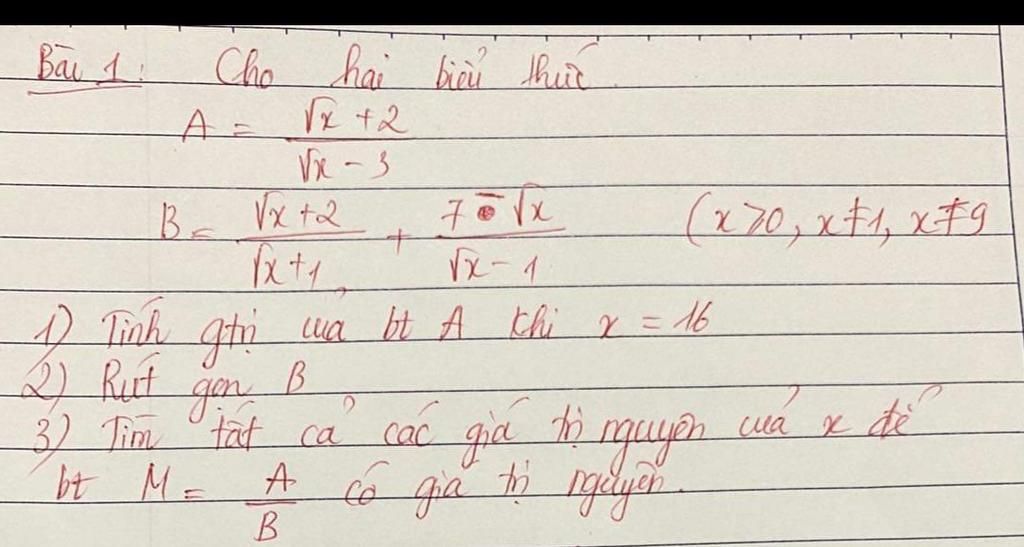 Bài 1: Cho hai biểu thức.
A = (√x + 2)/(√x - 3)
B = (√x + 2)/(√x + 1) + (7 - √x)/(√x - 1) (x > 0, x ≠ 1, x ≠ 9
1) Tính gtrị của bt A khi x = 16
2) Rút gọn B
3) Tìm tất cả các giá trị nguyên của x để
bt M = A/B có giá trị nguyên.